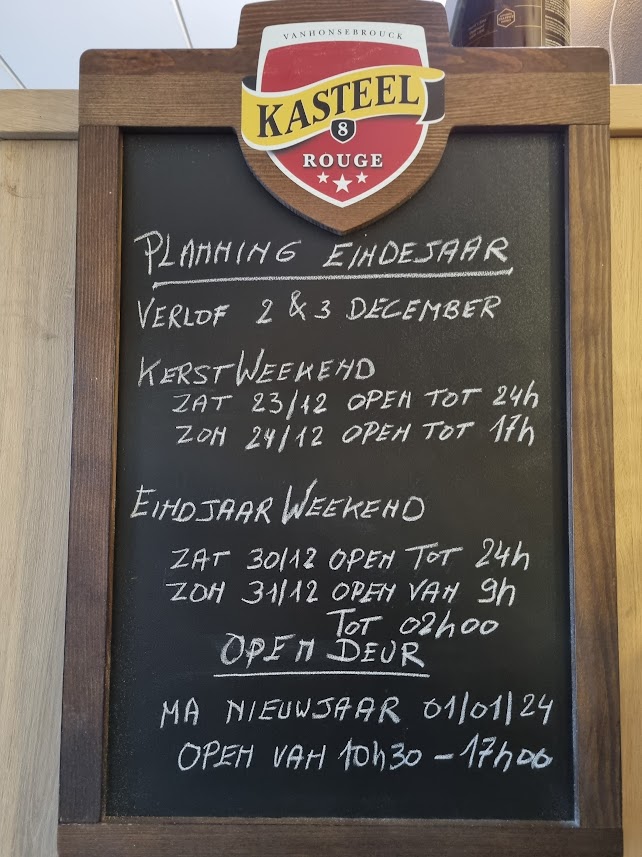 VANHONSEBROUCK
KASTEEL
8
ROUGE
PLANNING EINDEJAAR
VERLOF 2 & 3 DECEMBER
KERSTWEEKEND
ZAT 23/12 OPEN TOT 24h
ZON 24/12 OPEN TOT 17h
EINDJAARWEEKEND
ZAT 30/12 OPEN TOT 24h
ZON 31/12 OPEN VAN 9h
TOT 02h00
OPEN DEUR
MA NIEUWJAAR 01/01/24
OPEN VAN 10h30 - 17h00